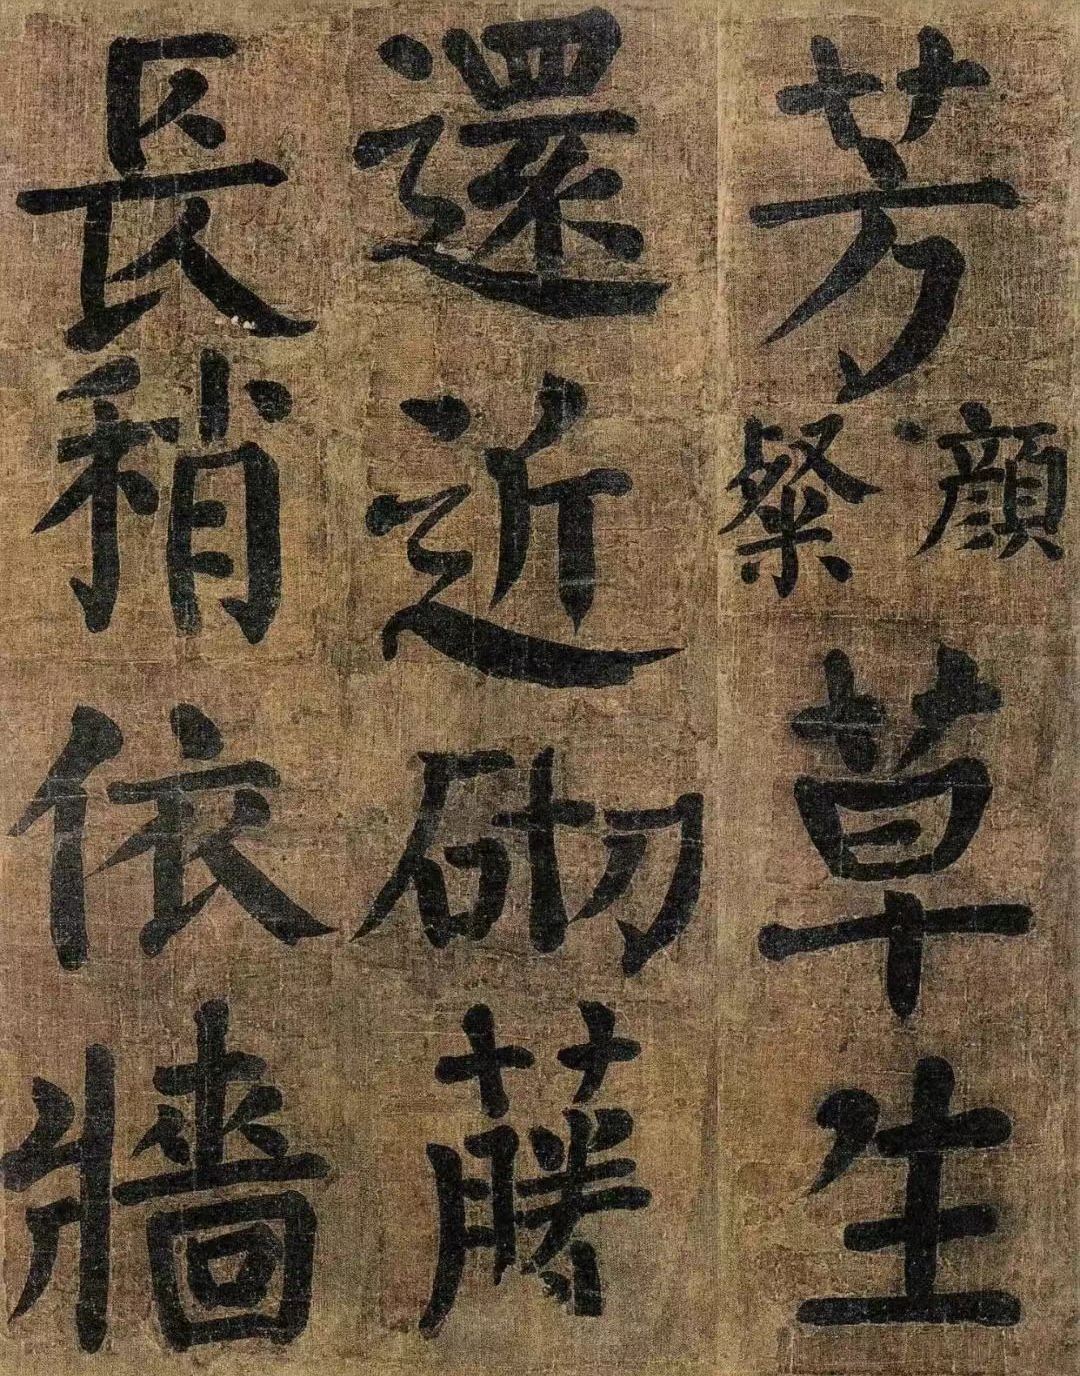 芳顔粲草生
還近砌藤
長稍依牆